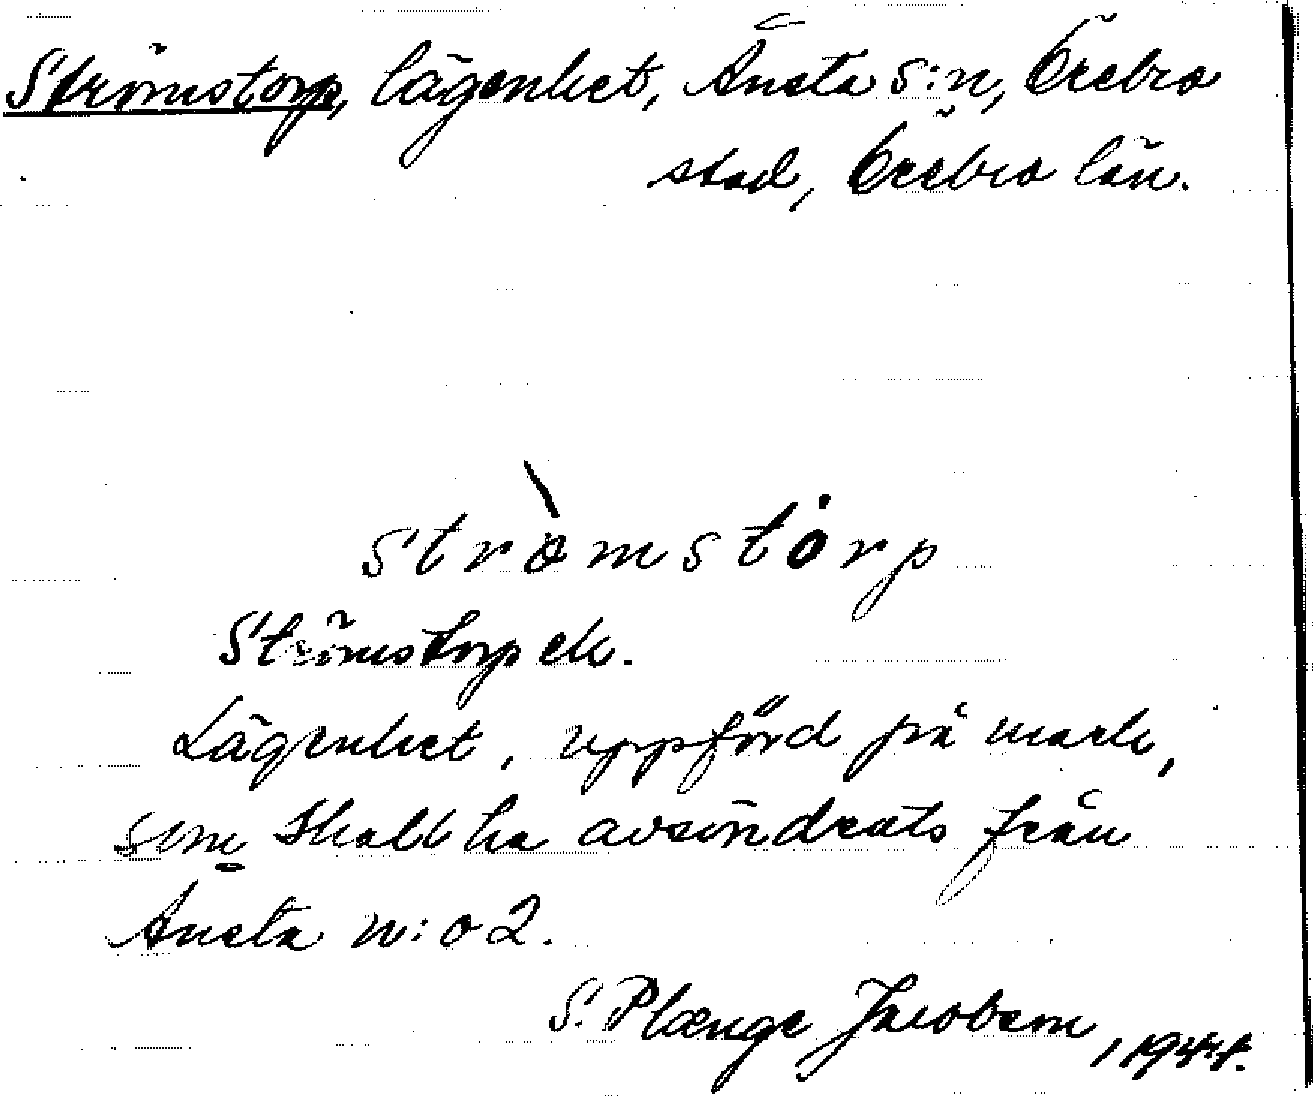 Strömstorp, lägenhet, Ånsta s:n, Örebro
stad, Örebro län.
Strömstorp
Strömstorp ek.
Lägenhet, uppförd på mark,
som skall ha avsöndrats från
Ånsta n:o 2.
S. Plænge Jacobson, 1944.